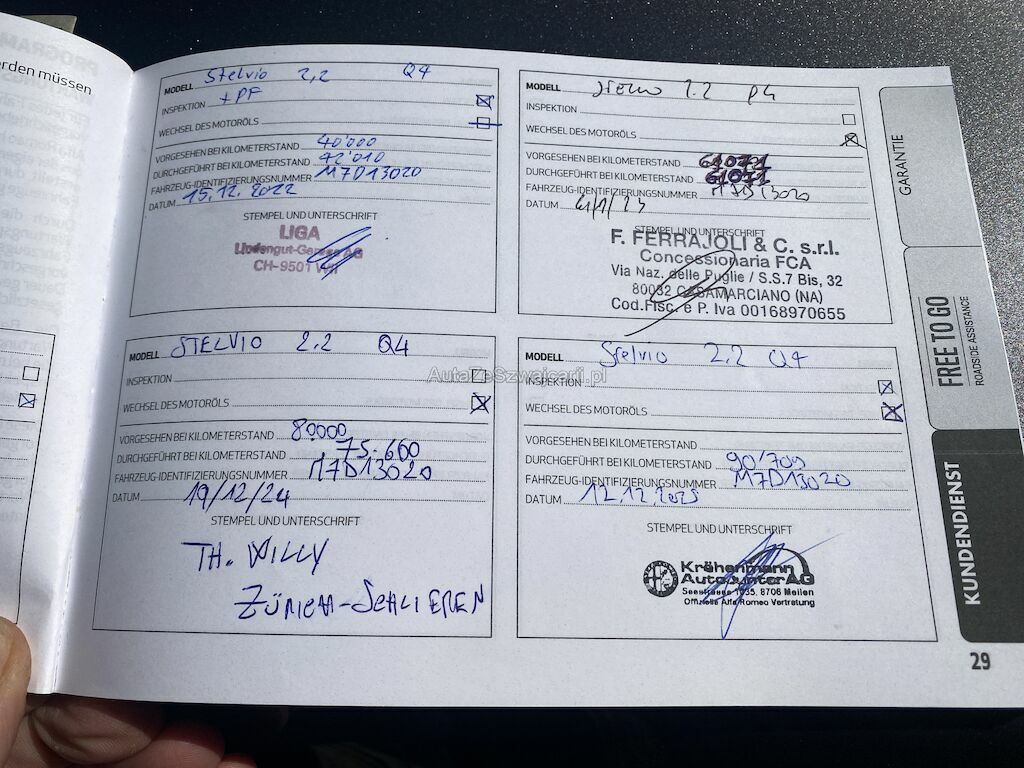 orden müssen
MODELL Stelvio 2,2 Q4
INSPEKTION + PF
WECHSEL DES MOTORÖLS
VORGESEHEN BEI KILOMETERSTAND 40'000
DURCHGEFÜHRT BEI KILOMETERSTAND 42'010
FAHRZEUG-IDENTIFIZIERUNGSNUMMER M7D13020
DATUM 15.12.2022
STEMPEL UND UNTERSCHRIFT
LIGA
CH-9501
MODELL 2.2
INSPEKTION
WECHSEL DES MOTORÖLS
VORGESEHEN BEI KILOMETERSTAND 61071
DURCHGEFÜHRT BEI KILOMETERSTAND 61071
FAHRZEUG-IDENTIFIZIERUNGSNUMMER M7D13020
DATUM
STEMPEL UND UNTERSCHRIFT
F. FERRAJOLI & C. s.r.l.
Concessionaria FCA
Via Naz. delle Puglie / S.S.7 Bis, 32
80032 CASAMARCIANO (NA)
Cod.Fisc. e P. Iva 00168970655
MODELL STELVIO 2.2 Q4
INSPEKTION
WECHSEL DES MOTORÖLS
VORGESEHEN BEI KILOMETERSTAND 80000
DURCHGEFÜHRT BEI KILOMETERSTAND 75.660
FAHRZEUG-IDENTIFIZIERUNGSNUMMER M7D13020
DATUM 19/12/24
STEMPEL UND UNTERSCHRIFT
TH. WILLY
ZÜRICH-SCHLIEREN
MODELL Stelvio 2.2 Q4
INSPEKTION
WECHSEL DES MOTORÖLS
VORGESEHEN BEI KILOMETERSTAND
DURCHGEFÜHRT BEI KILOMETERSTAND 90'709
FAHRZEUG-IDENTIFIZIERUNGSNUMMER M7D13020
DATUM 12.12.2025
STEMPEL UND UNTERSCHRIFT
Krähenmann
AutoCenter AG
Seestrasse 1035, 8706 Meilen
Offizielle Alfa Romeo Vertretung
GARANTIE
FREE TO GO
ROADSIDE ASSISTANCE
KUNDENDIENST
29
AutaZeSzwajcarii.pl